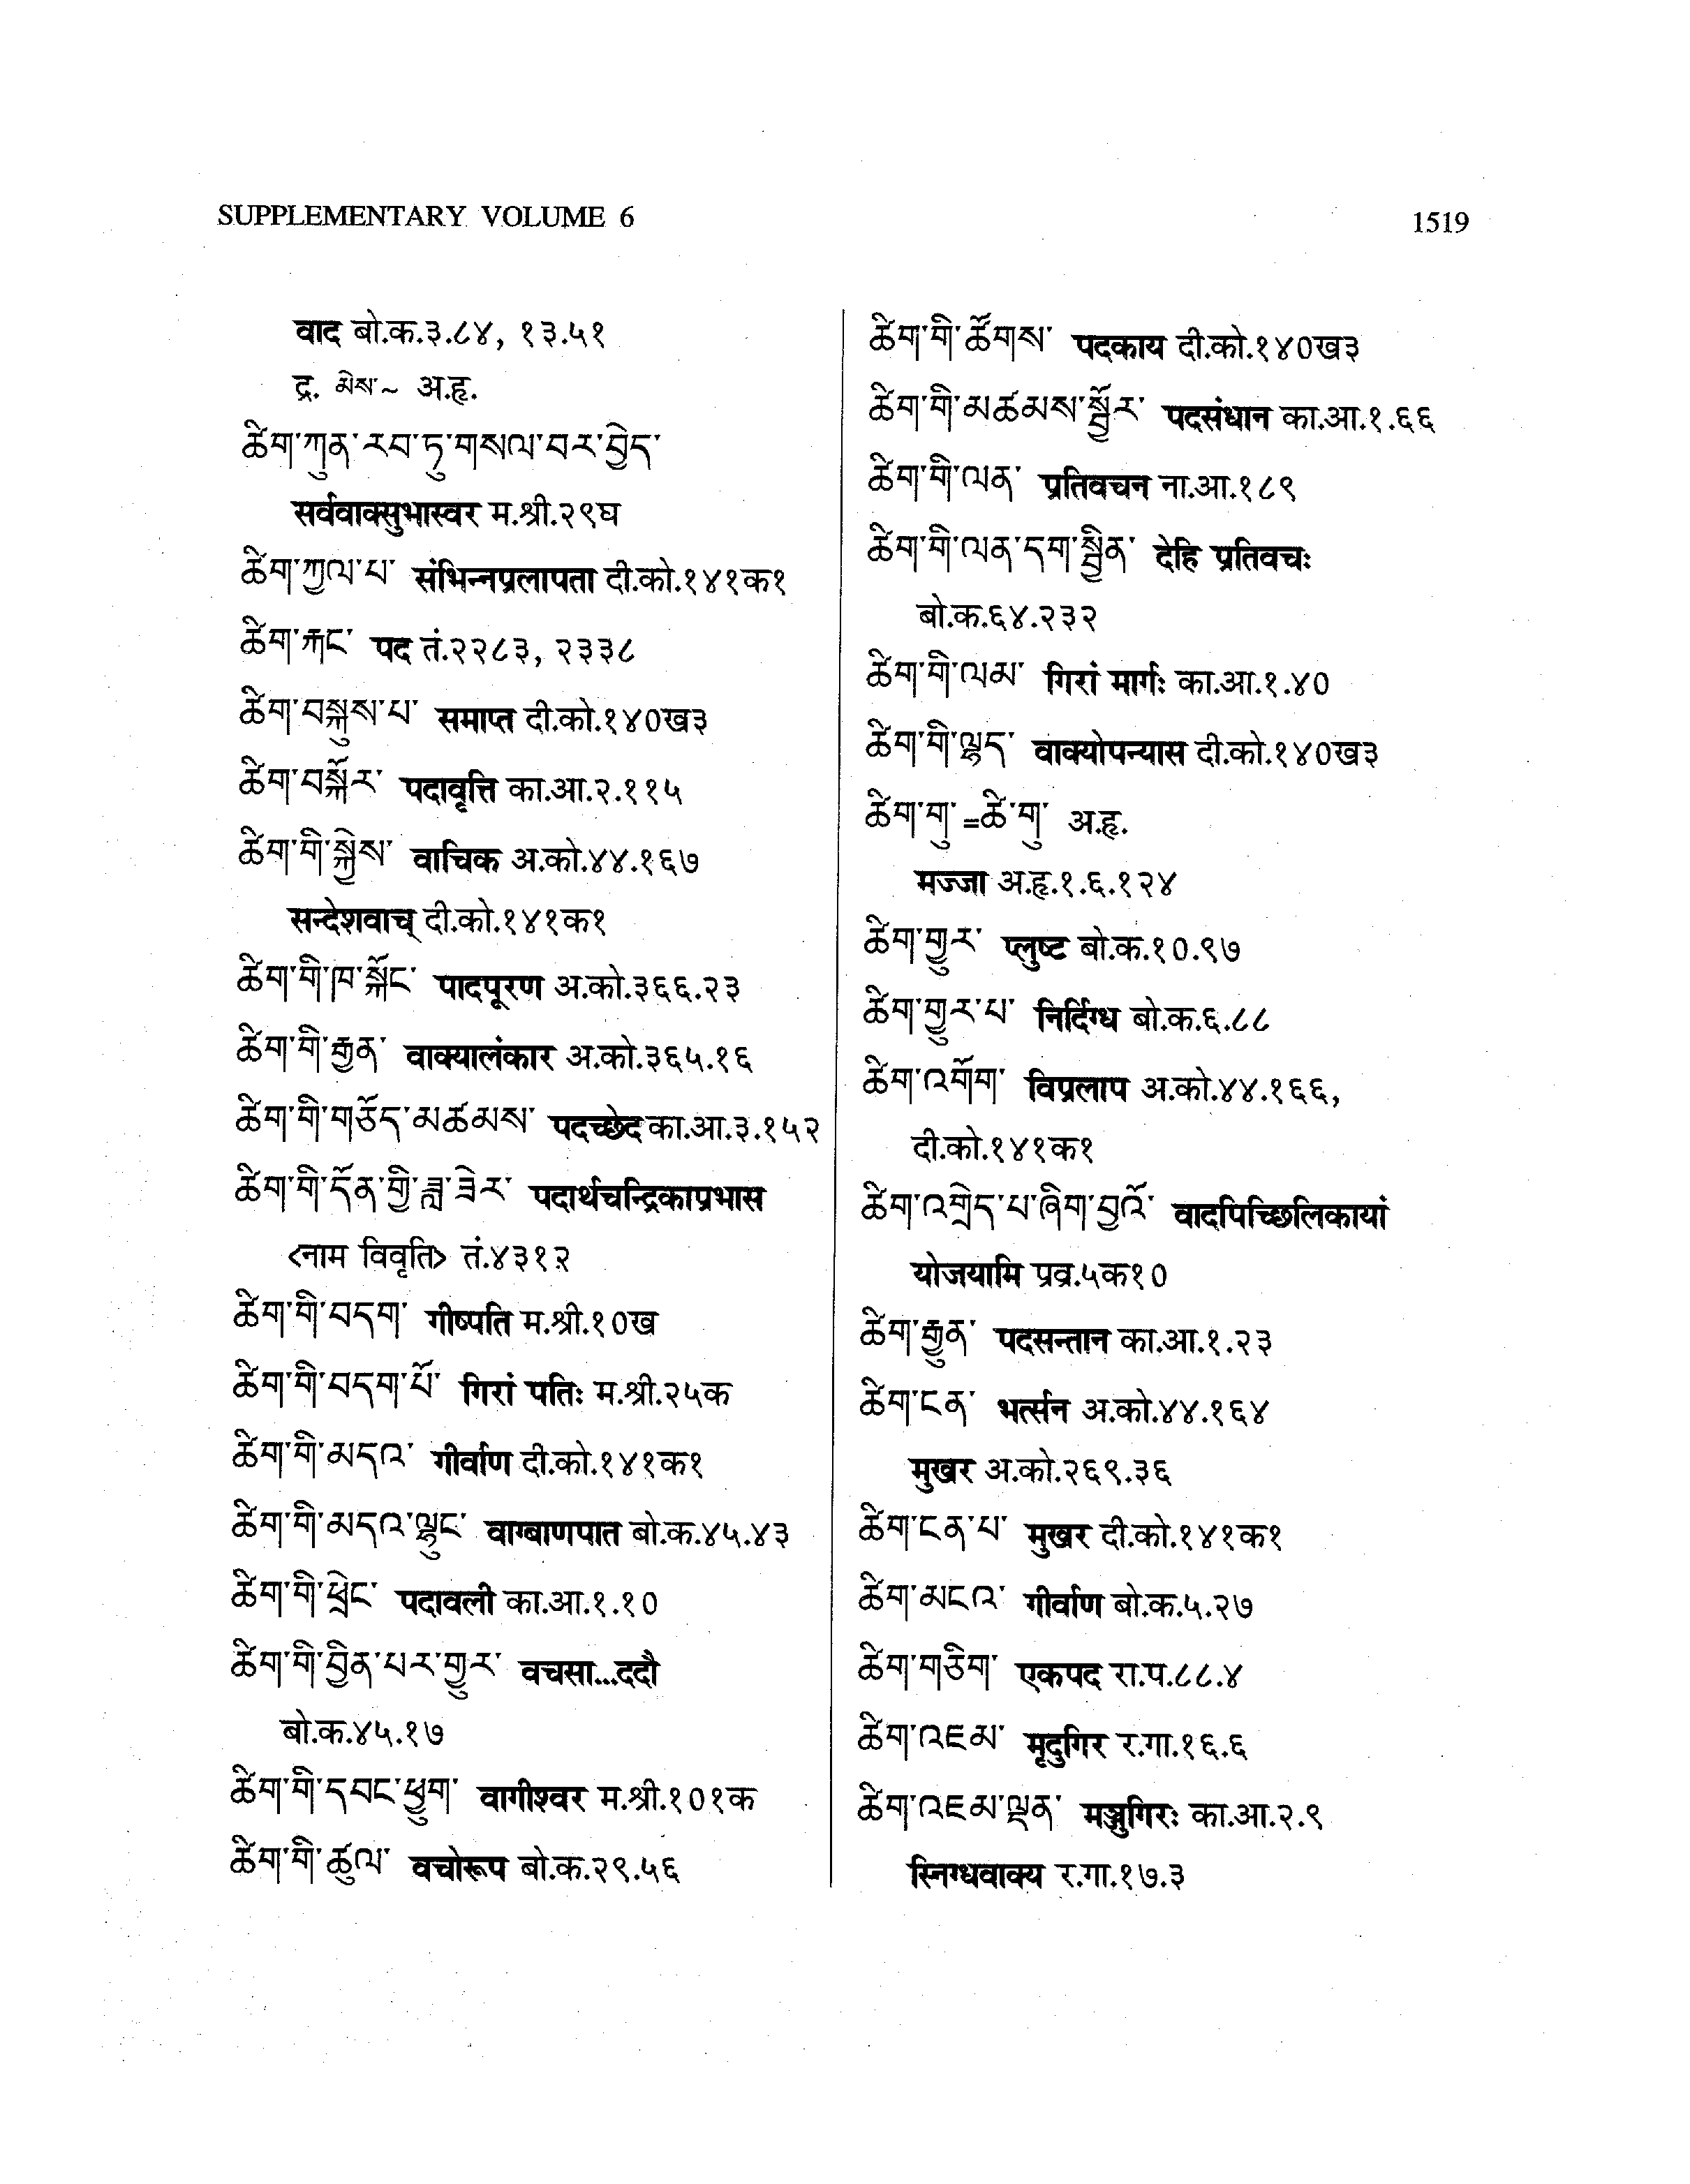 SUPPLEMENTARY VOLUME 6
1519
वाद बो.क.३.८४, १३.५१
द्र. མེས་~ अ.हृ.
ཚིག་ཀུན་རབ་ཏུ་གསལ་བར་བྱེད་
सर्ववाक्सुभास्वर म.श्री.२९घ
ཚིག་ཀྱལ་པ་ संभिन्नप्रलापता दी.को.१४१क१
ཚིག་རྐང་ पद तं.२२८३, २३३८
ཚིག་བསྐུས་པ་ समाप्त दी.को.१४०ख३
ཚིག་བསྐོར་ पदावृत्ति का.आ.२.११५
ཚིག་གི་སྐྱེས་ वाचिक अ.को.४४.१६७
सन्देशवाच् दी.को.१४१क१
ཚིག་གི་ཁ་སྐོང་ पादपूरण अ.को.३६६.२३
ཚིག་གི་རྒྱན་ वाक्यालंकार अ.को.३६५.१६
ཚིག་གི་གཅོད་མཚམས་ पदच्छेद का.आ.३.१५२
ཚིག་གི་དོན་གྱི་ཟླ་ཟེར་ पदार्थचन्द्रिकाप्रभास
<नाम विवृति> तं.४३१२
ཚིག་གི་བདག་ गीष्पति म.श्री.१०ख
ཚིག་གི་བདག་པོ་ गिरां पतिः म.श्री.२५क
ཚིག་གི་མདའ་ गीर्वाण दी.को.१४१क१
ཚིག་གི་མདའ་ལྷུང་ वाग्बाणपात बो.क.४५.४३
ཚིག་གི་ཕྲེང་ पदावली का.आ.१.१०
ཚིག་གི་བྱིན་པར་གྱུར་ वचसा...ददौ
बो.क.४५.१७
ཚིག་གི་དབང་ཕྱུག་ वागीश्वर म.श्री.१०१क
ཚིག་གི་ཚུལ་ वचोरूप बो.क.२९.५६
ཚིག་གི་ཚོགས་ पदकाय दी.को.१४०ख३
ཚིག་གི་མཚམས་སྦྱོར་ पदसंधान का.आ.१.६६
ཚིག་གི་ལན་ प्रतिवचन ना.आ.१८९
ཚིག་གི་ལན་དག་སྦྱིན་ देहि प्रतिवचः
बो.क.६४.२३२
ཚིག་གི་ལམ་ गिरां मार्गः का.आ.१.४०
ཚིག་གི་ལྷད་ वाक्योपन्यास दी.को.१४०ख३
ཚིག་གུ་=ཚི་གུ་ अ.हृ.
मज्जा अ.हृ.१.६.१२४
ཚིག་གྱུར་ प्लुष्ट बो.क.१०.९७
ཚིག་གྱུར་པ་ निर्दिग्ध बो.क.६.८८
ཚིག་འགོག་ विप्रलाप अ.को.४४.१६६,
दी.को.१४१क१
ཚིག་འགྲེད་པ་ཞིག་བྱའོ་ वादपिच्छिलिकायां
योजयामि प्रव्र.५क१०
ཚིག་རྒྱུན་ पदसन्तान का.आ.१.२३
ཚིག་ངན་ भर्त्सन अ.को.४४.१६४
मुखर अ.को.२६९.३६
ཚིག་ངན་པ་ मुखर दी.को.१४१क१
ཚིག་མངའ་ गीर्वाण बो.क.५.२७
ཚིག་གཅིག་ एकपद रा.प.८८.४
ཚིག་འཇམ་ मृदुगिर र.गा.१६.६
ཚིག་འཇམ་ལྡན་ मञ्जुगिरः का.आ.२.९
स्निग्धवाक्य र.गा.१७.३